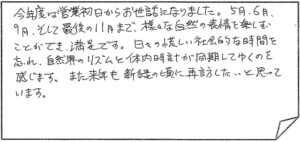 今年度は営業初日からお世話になりました。5月、6月、
9月、そして最後の11月まで、様々な自然の表情を楽しむ
ことができ、満足です。日々の慌しい社会的な時間を
忘れ、自然界のリズムと体内時計が同期してゆくのを
感じます。また来年も新緑の頃に再訪したいと思って
います。